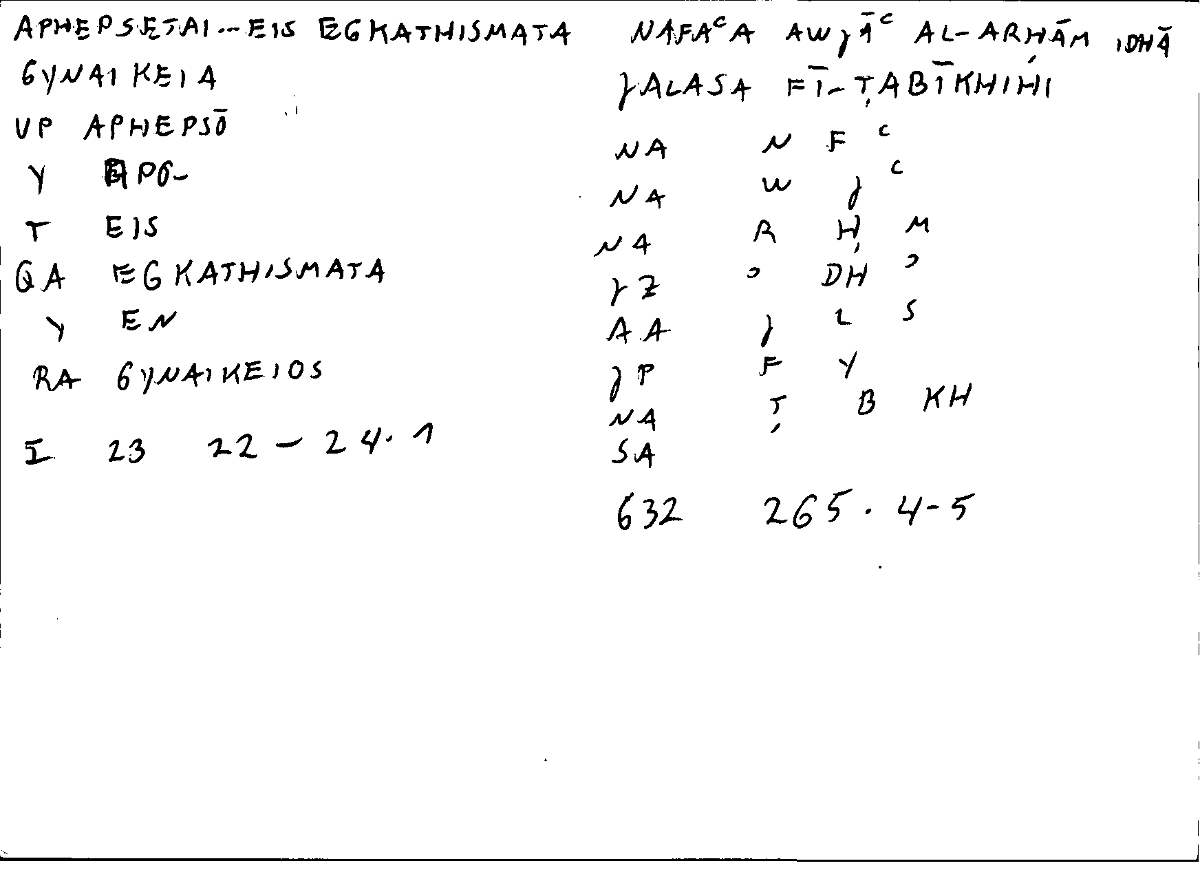 APHEPSETAI...EIS EGKATHISMATA
GYNAIKEIA
VP APHEPSŌ
Y APO-
T EIS
QA EGKATHISMATA
Y EN
RA GYNAIKEIOS
I 23 22-24.1
NAFAᶜA AWJĀᶜ AL-ARḤĀM IDHĀ
JALASA FĪ-ṬABĪKHIHI
NA N F ᶜ
NA W J ᶜ
NA R Ḥ M
JZ ʾ DH ʾ
AA J L S
JP F Y
NA Ṭ B KH
SA
632 265.4-5